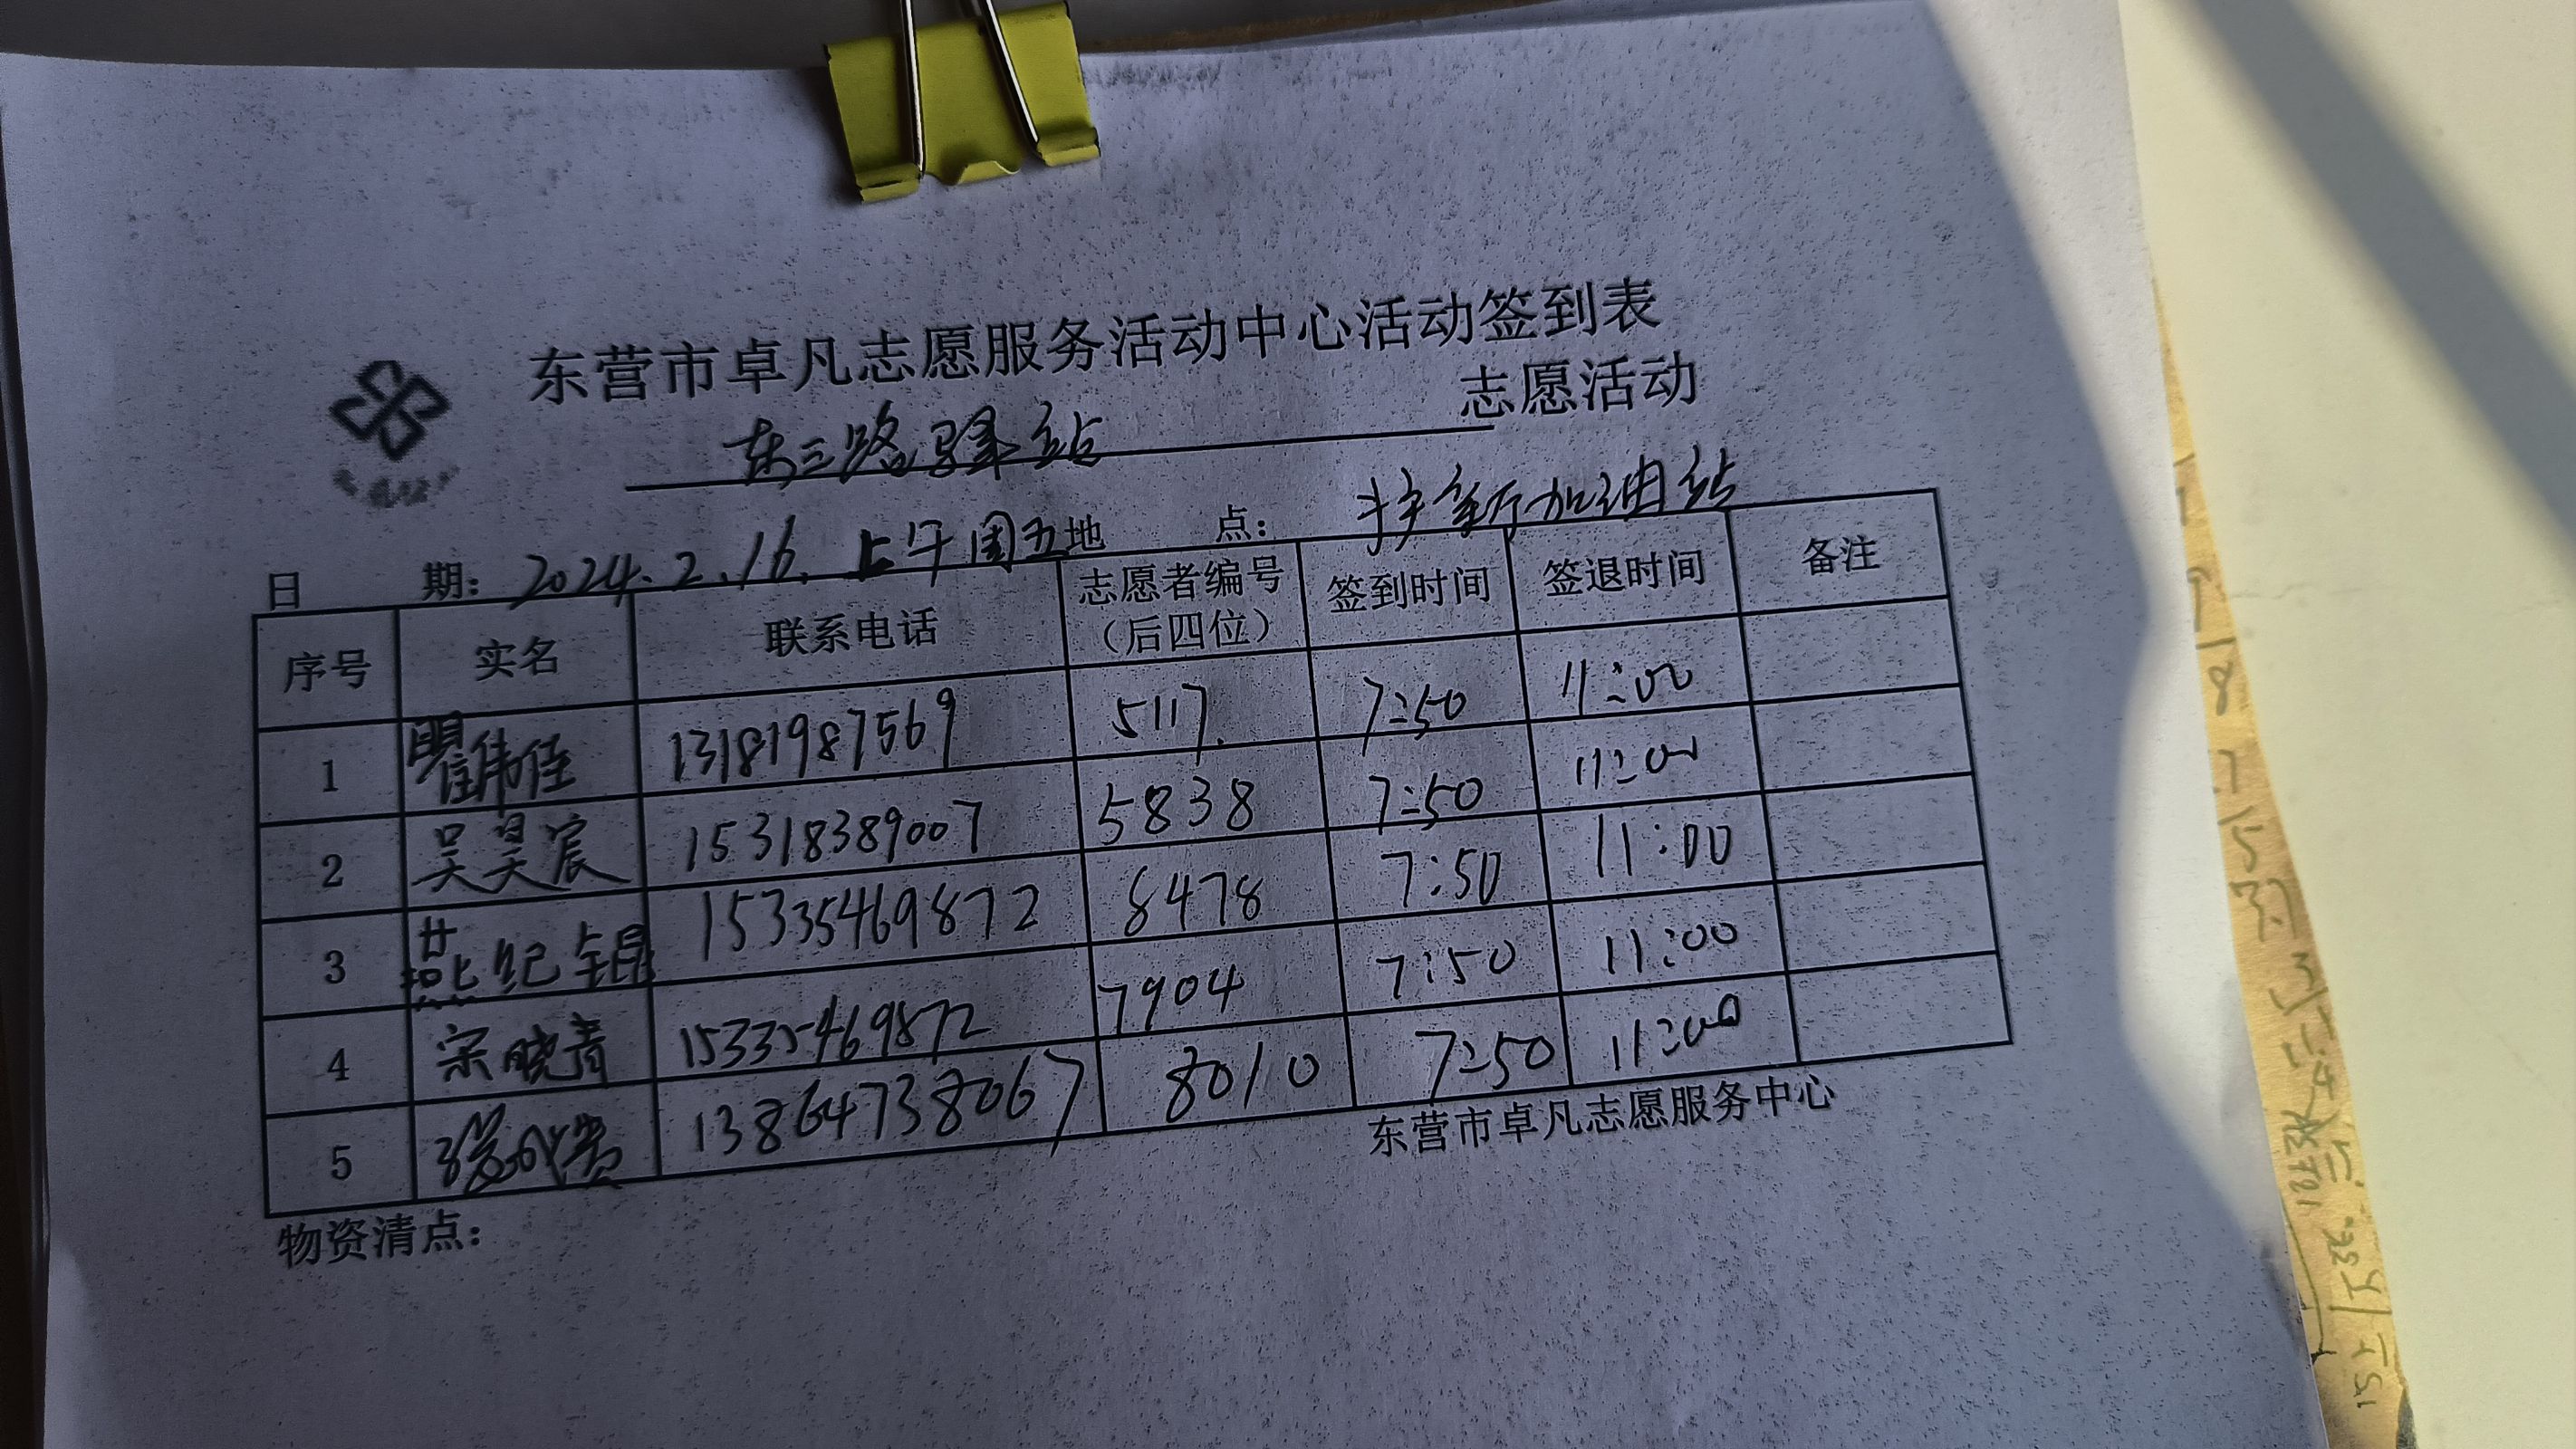 东营市卓凡志愿服务活动中心活动签到表
东三路驿站 志愿活动
日 期：2024.2.16.上午周五 地 点：护新加油站
序号 实名 联系电话 志愿者编号（后四位） 签到时间 签退时间 备注
1 瞿伟佳 13181987569 5117. 7:50 11:00
2 吴昊宸 15318389007 5838 7:50 11:00
3 燕纪锟 15335469872 8478 7:50 11:00
4 宋晓青 15335469872 7904 7:50 11:00
5 13864738067 8010 7:50 11:00
东营市卓凡志愿服务中心
物资清点：